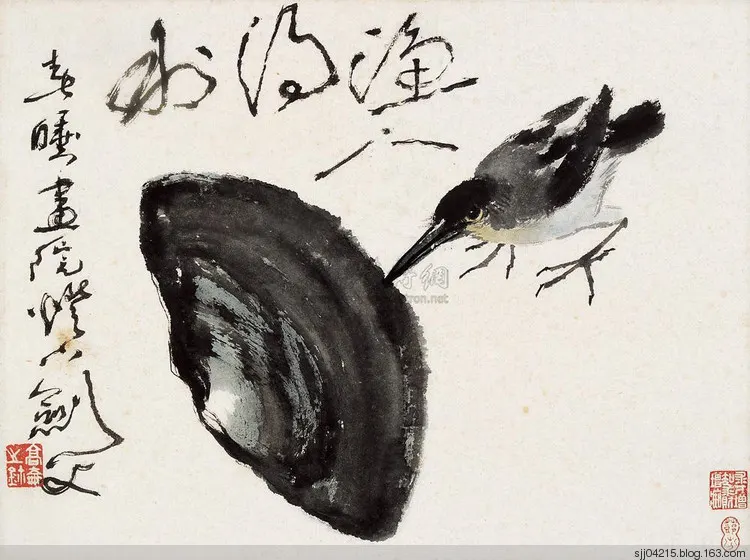 漁人得利
春睡畫院燈下劍父
sjj04215.blog.163.com